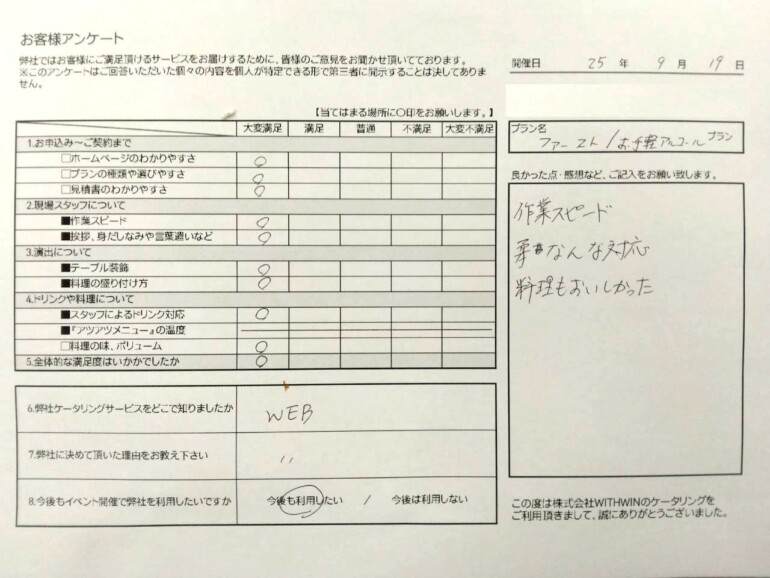 お客様アンケート
弊社ではお客様にご満足頂けるサービスをお届けするために、皆様のご意見をお聞かせ頂いてております。
※このアンケートはご回答いただいた個々の内容を個人が特定できる形で第三者に開示することは決してありま
せん。
開催日 25 年 9 月 19 日
【当てはまる場所に○印をお願いします。】
大変満足 満足 普通 不満足 大変不満足
1.お申込み～ご契約まで
□ホームページのわかりやすさ ○
□プランの種類や選びやすさ ○
□見積書のわかりやすさ ○
2.現場スタッフについて
■作業スピード ○
■挨拶、身だしなみや言葉遣いなど ○
3.演出について
■テーブル装飾 ○
■料理の盛り付け方 ○
4.ドリンクや料理について
■スタッフによるドリンク対応 ○
■『アツアツメニュー』の温度
□料理の味、ボリューム ○
5.全体的な満足度はいかがでしたか ○
6.弊社ケータリングサービスをどこで知りましたか WEB
7.弊社に決めて頂いた理由をお教え下さい 〃
8.今後もイベント開催で弊社を利用したいですか 今後も利用したい / 今後は利用しない
プラン名
ファースト/お手軽アルコールプラン
良かった点・感想など、ご記入をお願い致します。
作業スピード
なんな対応
料理もおいしかった
この度は株式会社WITHWINのケータリングを
ご利用頂きまして、誠にありがとうございました。